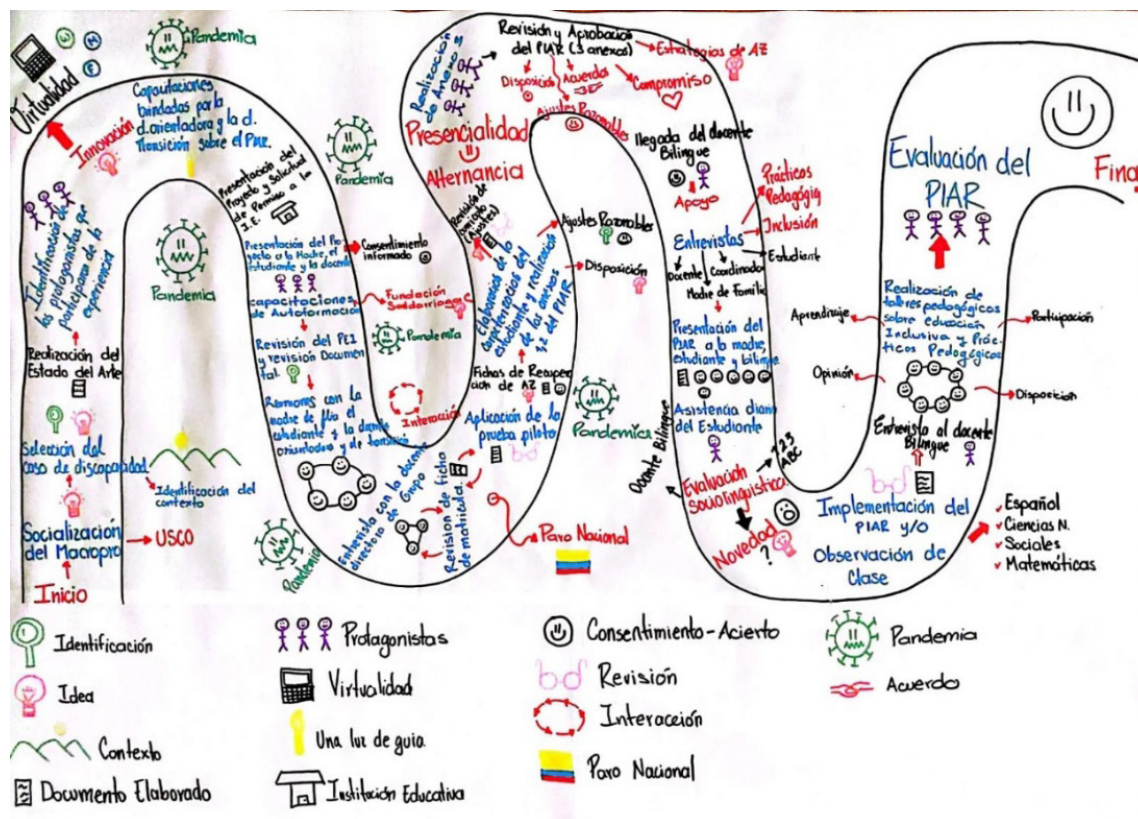 Inicio
Socialización
del Macropro
USCO
Selección del
caso de discapacidad
Identificación del
contexto
Realización del
Estado del Arte
Identificación de
los protagonistas que
participaran de la
experiencia
Innovación
Virtualidad
Pandemia
Capacitaciones
brindadas por la
d.orientadora y la d.
Transición sobre el PIAR.
Pandemia
Presentación del
Proyecto y Solicitud
de Permiso a la
I.E.
Pandemia
Presentación del Pro
yecto a la Madre, el
Estudiante y la docente
Consentimiento
informado
capacitaciones
de Autoformación
Fundación
Pandemia
Revisión del PEI
y revisión Documen
tal.
Reuniones con la
madre de flia el
estudiante y la docente
orientadora y de transición
Interacción
Pandemia
Entrevista con la docente
directora de Grupo
Revisión de ficha
de matricula.
Paro Nacional
Aplicación de la
prueba piloto
Fichas de Recuper
ación de AZ
Pandemia
Elaboración de la
caracterización del
estudiante y realización
de los anexos
1,2 del PIAR
Disposición
Ajustes Razonables
Revisión de
(Ajustes)
Alternancia
Presencialidad
Realización
de Anexo 3
Revisión y Aprobación
del PIAR (3 anexos)
Estrategias de AZ
Disposición
Acuerdos
Compromiso
Ajustes Razonables
llegada del docente
Bilingüe
Apoyo
Entrevistas
Prácticas
Pedagógig
Inclusión
Estudiante
Docente
Coordinador
Madre de Familia
Presentación del
PIAR a la madre,
estudiante y bilingüe
Asistencia diaria
del Estudiante
Docente Bilingüe
Evaluación
sociolinguistica.
123
ABC
Novedad
?
Implementación del
PIAR y/o
Observación de
Clase
Español
Ciencias N.
Sociales
Matemáticas
Entrevista al docente
Bilingüe
Aprendizaje
Opinión
Participación
Disposición
Realización de
talleres pedagógicos
sobre educación
Inclusiva y Prác-
ticos Pedagógicos
Evaluación del
PIAR
Fina
Identificación
Idea
Contexto
Documento Elaborado
Protagonistas
Virtualidad
Una luz de guia.
Institución Educativa
Consentimiento-Acierto
Revisión
Interacción
Paro Nacional
Pandemia
Acuerdo